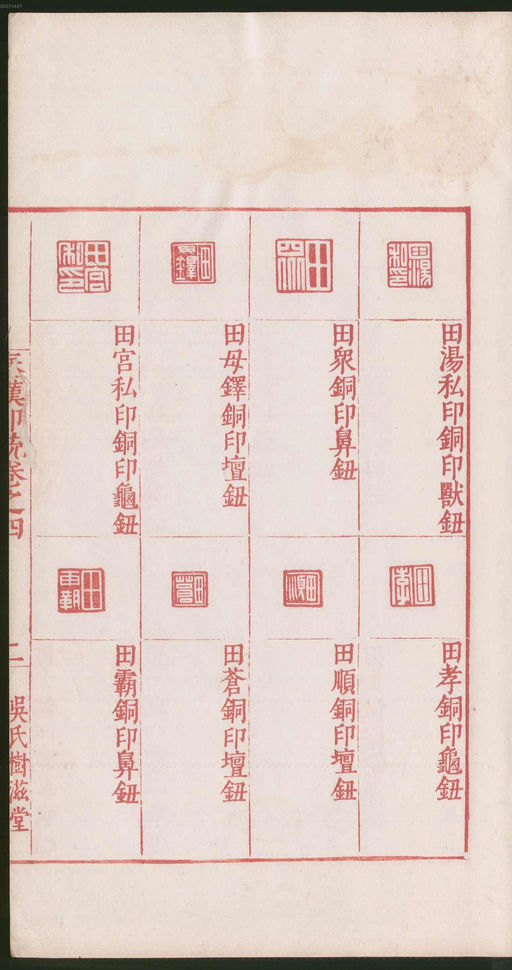 00073447
田湯私印
田湯私印銅印獸鈕
田眾
田眾銅印鼻鈕
田母鐸
田母鐸銅印壇鈕
田宮私印
田宮私印銅印龜鈕
田孝
田孝銅印龜鈕
田順
田順銅印壇鈕
田蒼
田蒼銅印壇鈕
田霸
田霸銅印鼻鈕
漢印統卷之四
二
吳氏樹滋堂